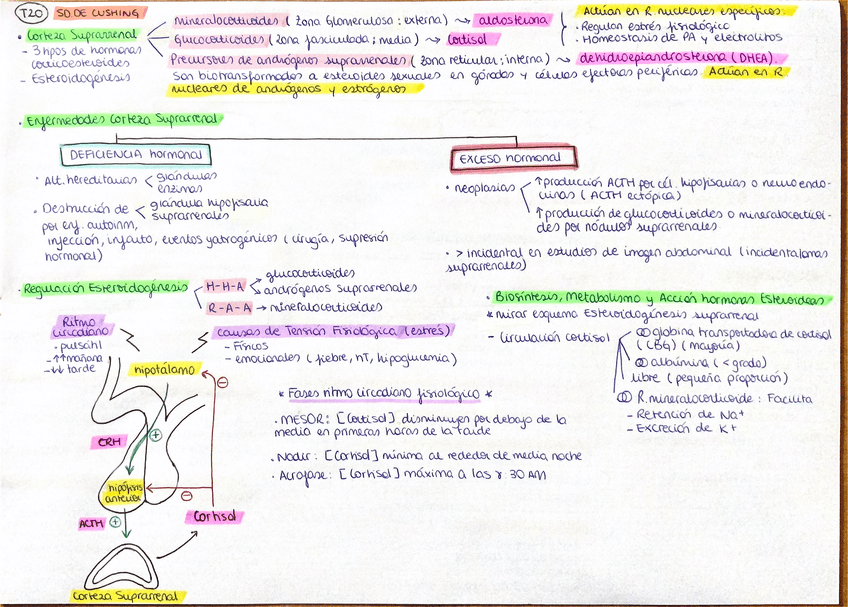 T20 SD DE CUSHING
· Corteza Suprarrenal
- 3 tipos de hormonas
corticoesteroides
- Esteroidogénesis
Mineralocorticoides (zona Glomerulosa: externa) → aldosterona
Glucocorticoides (zona fasciculada; media) → Cortisol
Precursores de andrógenos suprarrenales (zona reticular; interna) → dehidroepiandrosterona (DHEA).
Actúan en R nucleares específicos.
· Regulan estrés fisiológico
· Homeostasis de PA y electrolitos
Son biotransformados a esteroides sexuales en gónadas y células efectoras periféricas. Actúan en R
nucleares de andrógenos y estrógenos
· Enfermedades Corteza Suprarrenal
DEFICIENCIA hormonal
· Alt. hereditarias < glándulas
enzimas
· Destrucción de < glándula hipofisaria
suprarrenales
por enf. autoinm,
inyección, infarto, eventos yatrogénicos (cirugía, supresión
hormonal)
EXCESO hormonal
· neoplasias
↑producción ACTH por cél. hipofisarias o neuroendo-
crinas (ACTH ectópica)
↑producción de glucocorticoides o mineralocorticoi-
des por nódulos suprarrenales
· > incidental en estudios de imagen abdominal (incidentalomas
suprarrenales)
· Regulación Esteroidogénesis
H-H-A
glucocorticoides
andrógenos suprarrenales
R-A-A → mineralocorticoides
Ritmo
circadiano
· pulsátil
- ↑↑mañana
- ↓↓ tarde
causas de Tensión Fisiológica (estrés)
- Físicos
- emocionales (fiebre, hT, hipoglucemia)
hipotálamo
CRH
+
hipófisis
anterior
ACTH +
Cortisol
Corteza Suprarrenal
* Fases ritmo circadiano fisiológico *
· MESOR: [Cortisol] disminuye por debajo de la
media en primeras horas de la tarde
· Nadir: [Cortisol] mínima al rededor de media noche
· Acrofase: [Cortisol] máxima a las 8:30 AM
· Biosíntesis, Metabolismo y Acción hormonas Esteroideas
* mirar esquema Esteroidogénesis suprarrenal
- Circulación cortisol
globina transportadora de cortisol
(CBG) (mayoría)
albúmina (< grado)
libre (pequeña proporción)
R. mineralocorticoide: Facilita
- Retención de Na+
- Excreción de K+